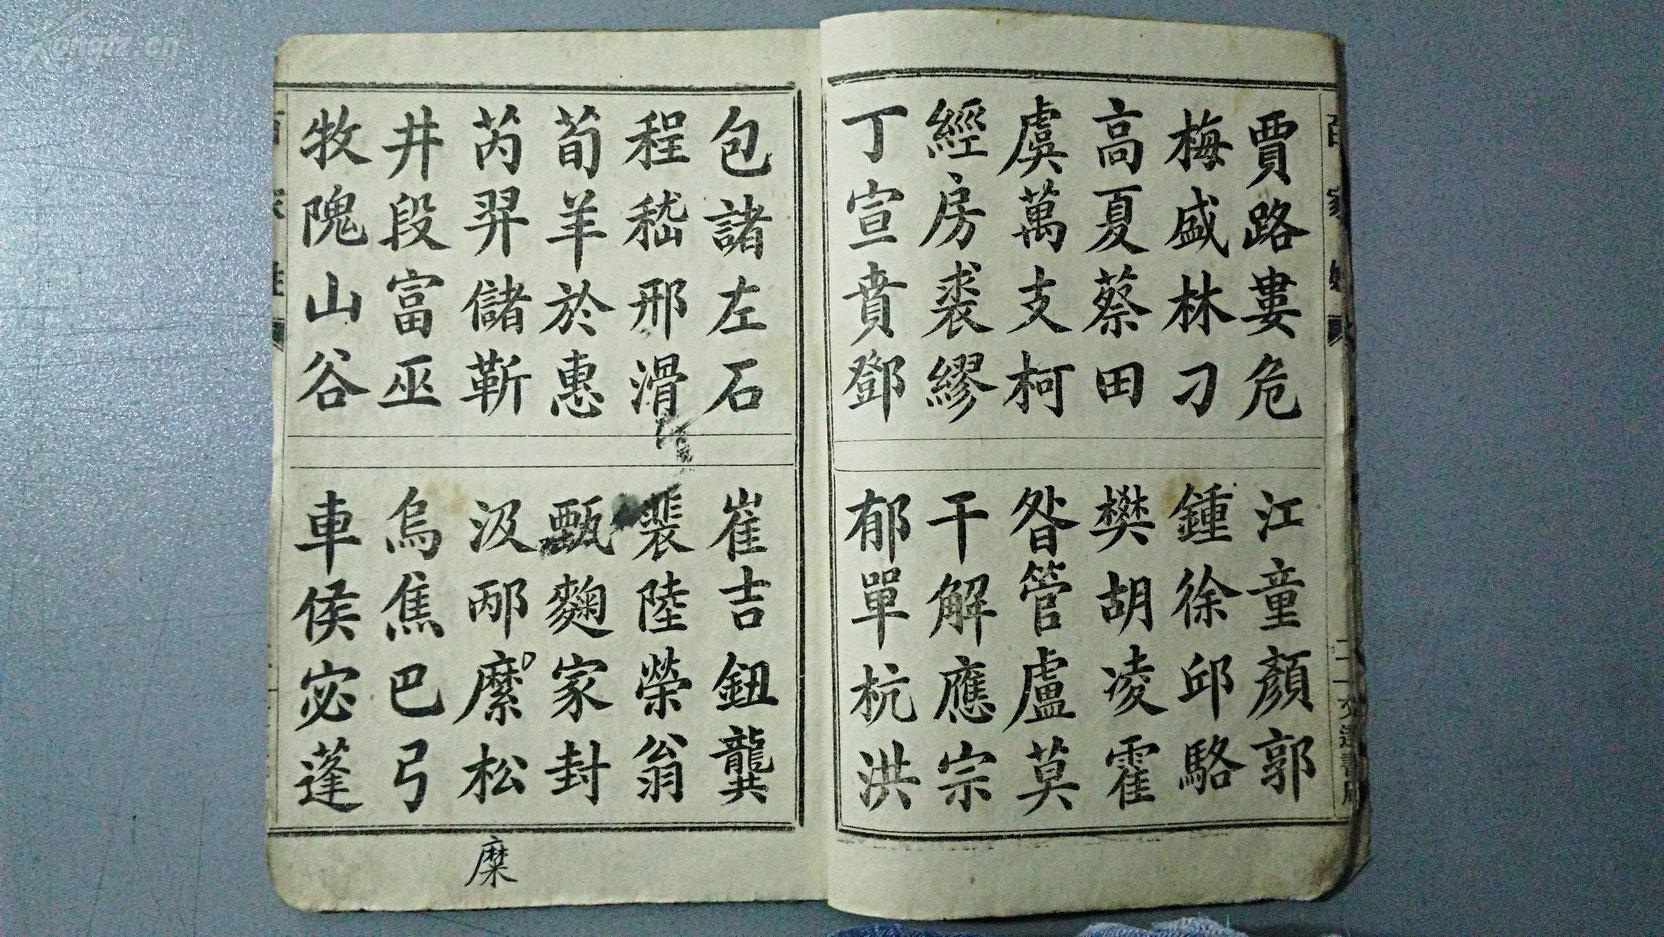 賈路婁危
江童顏郭
梅盛林刁
鍾徐邱駱
高夏蔡田
樊胡凌霍
虞萬支柯
昝管盧莫
經房裘繆
干解應宗
丁宣賁鄧
郁單杭洪
包諸左石
崔吉鈕龔
程嵇邢滑
裴陸榮翁
荀羊於惠
甄麴家封
芮羿儲靳
汲邴縻松
糜
井段富巫
烏焦巴弓
牧隗山谷
車侯宓蓬
百家姓
kongfz.cn